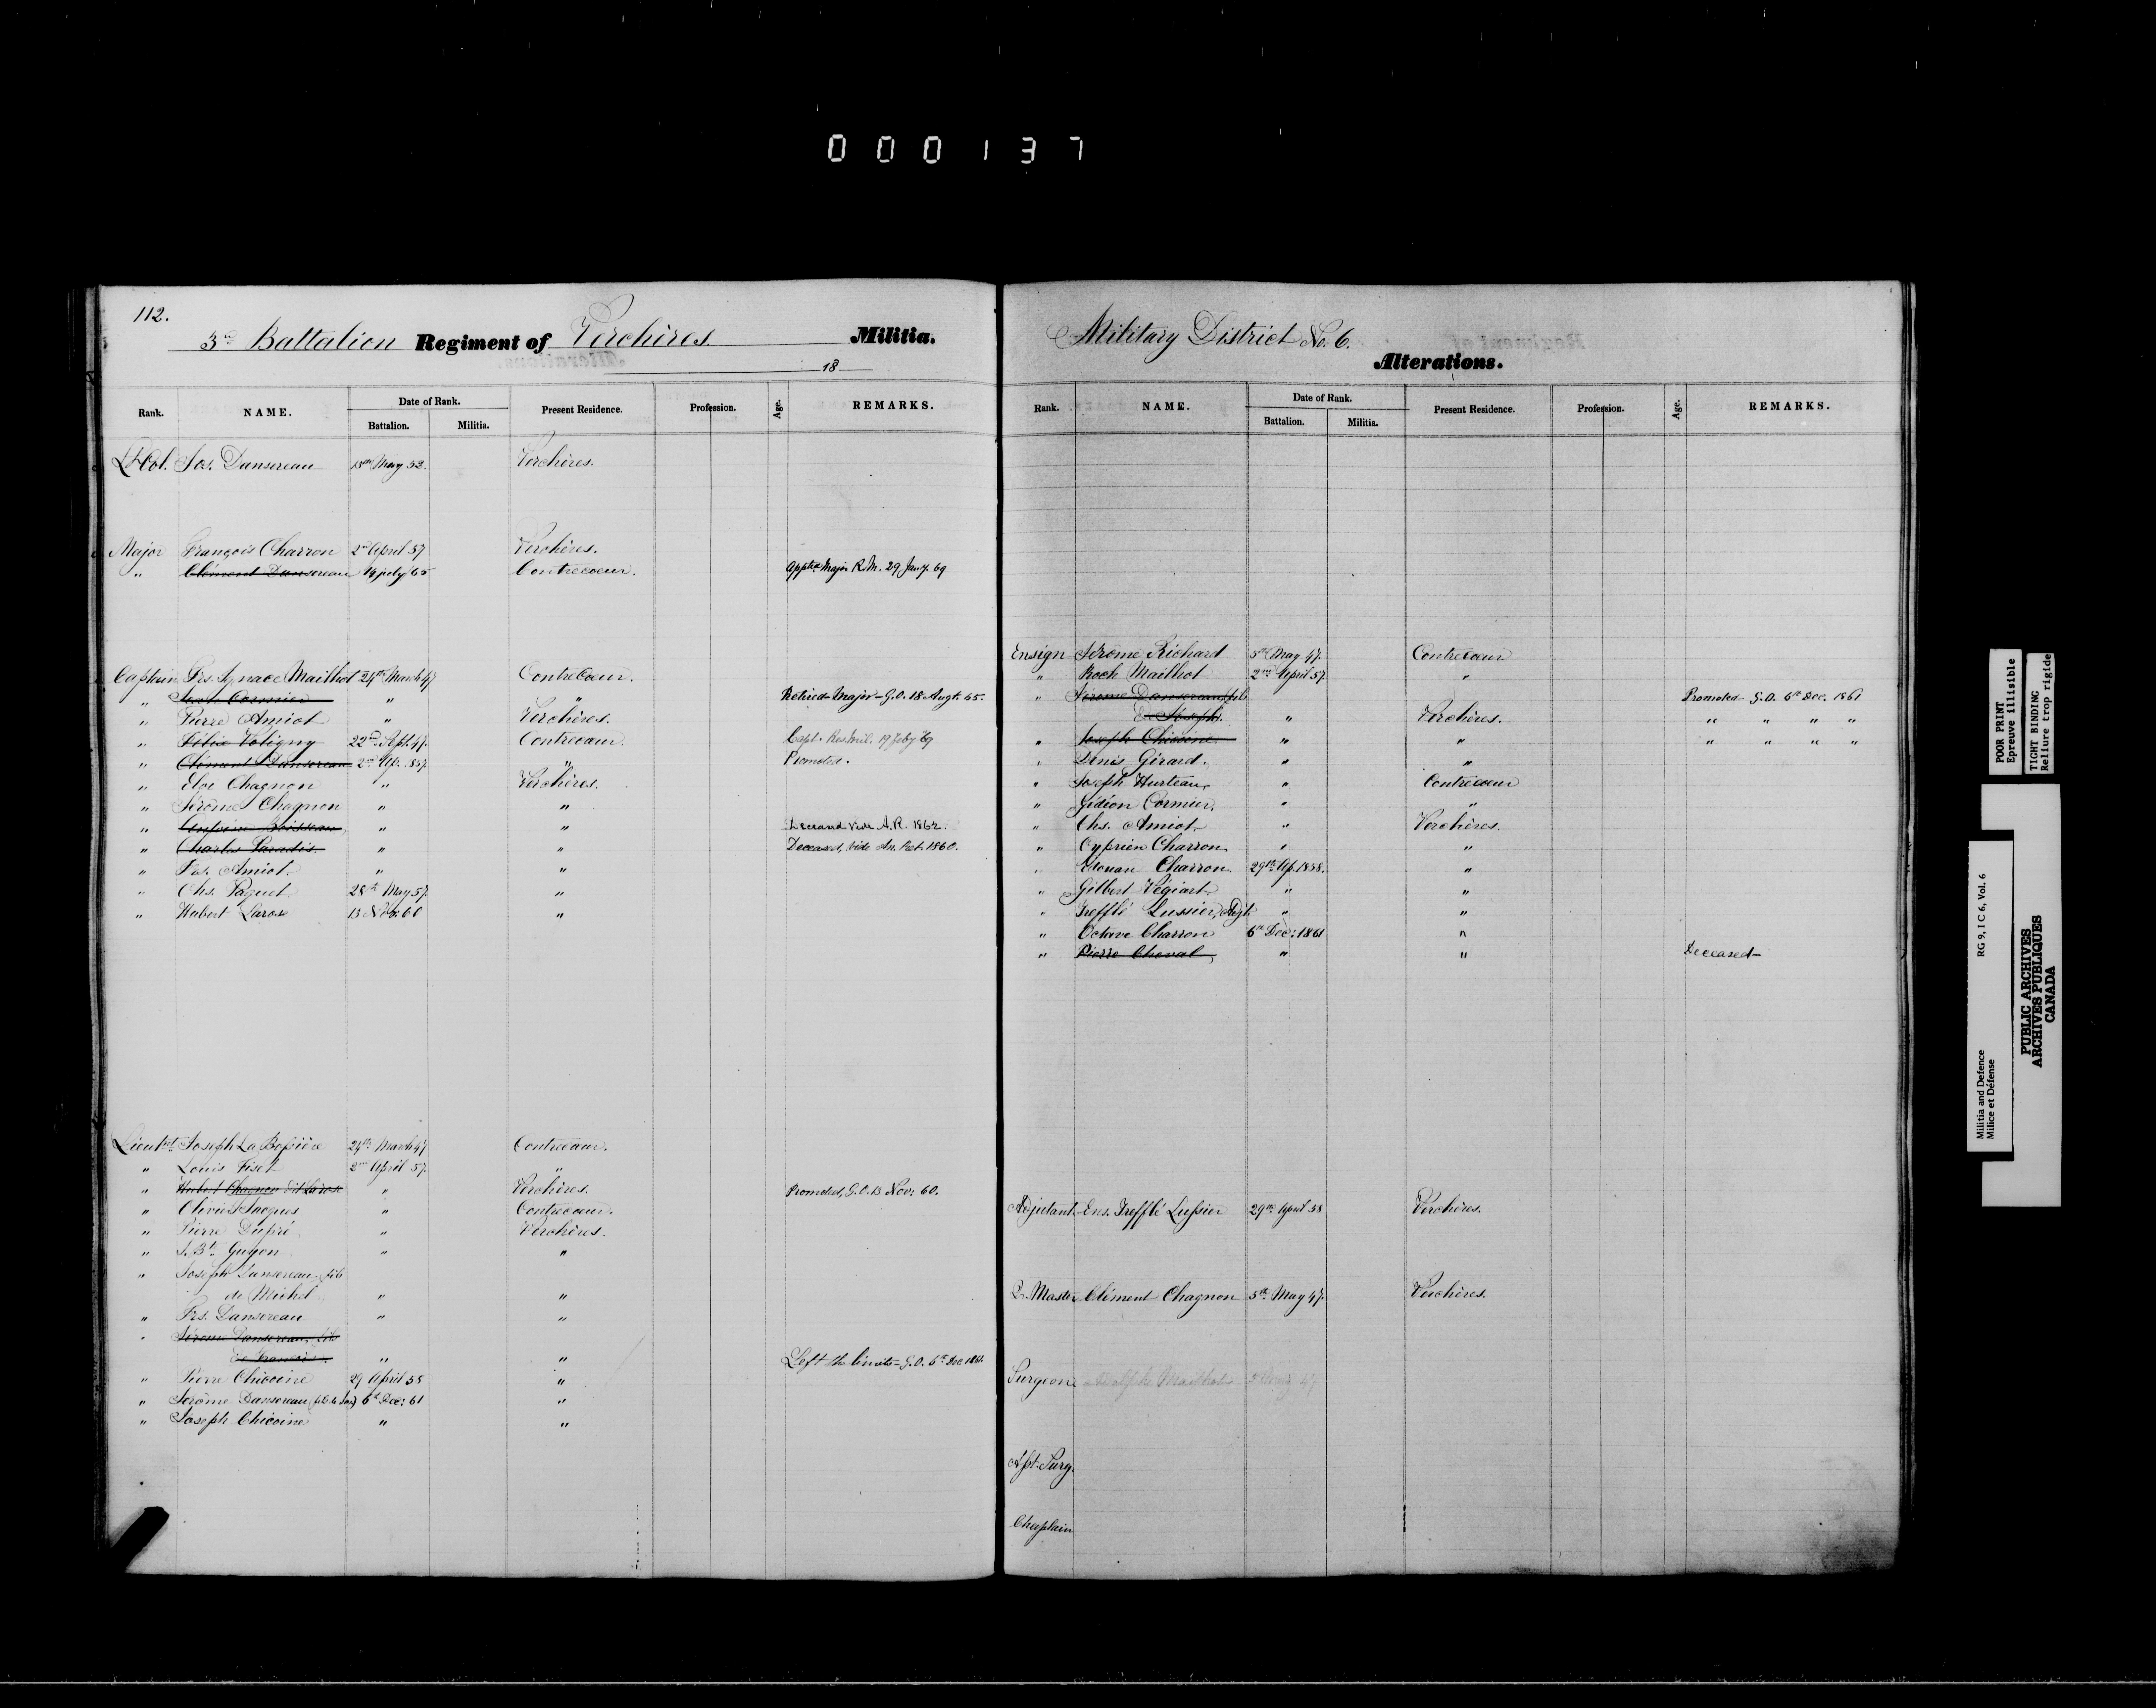 000137
112.
3rd Battalion Regiment of Verchères Militia.
18
Rank. NAME. Date of Rank. Present Residence. Profession. Age. REMARKS.
Battalion. Militia.
Lt Col. Jos. Dansereau 15th May 52. Verchères.
Major François Charron 2nd April 57 Verchères.
" Clément Dansereau 14 July 65 Contrecoeur. Apptd Major R.M. 29 Jany. 69
Captain Frs. Ignace Mailhot 24th March 47 Contrecoeur.
" Cormier " " Retired Major - G.O. 18 Augt. 65.
" Pierre Amiot " Verchères.
" Félix Voligny 22nd Sept. 47. Contrecoeur. Capt. Res Mil. 19 Feby 69
" Clément Dansereau 2nd Ap. 857. " Promoted.
" Eloi Chagnon " Verchères.
" Jérôme Chagnon " "
" Antoine Boisseau " " Deceased vide A.R. 1862.
" Charles Paradis " " Deceased, vide An. Ret. 1860.
" Frs. Amiot " "
" Chs. Paquet 28th May 57. "
" Hubert Larose 13 Nov: 60 "
Lieutnt. Joseph La Bossière 24th March 47 Contrecoeur.
" Louis Fiset 2nd April 57. "
" Hubert Chagnon dit Larose " Verchères. Promoted, G.O. 13 Nov: 60.
" Olivier Jacques " Contrecoeur.
" Pierre Dupré " Verchères.
" J. Bte. Guyon " "
" Joseph Dansereau, fils
de Michel " "
" Frs. Dansereau " "
" Jérome Dansereau, fils
de François. " " Left the limits - G.O. 6th Dec 1861.
" Pierre Chicoine 29 April 58 "
" Jérôme Dansereau (fils de Jos) 6th Dec: 61 "
" Joseph Chicoine " "
Military District No. 6.
Alterations.
Rank. NAME. Date of Rank. Present Residence. Profession. Age. REMARKS.
Battalion. Militia.
Ensign Jérôme Richard 5th May 47. Contrecoeur
" Roch Mailhot 2nd April 57. "
" Jérome Dansereau, fils Promoted G.O. 6th Dec. 1861
de Joseph. " Verchères. " " " "
" Joseph Chicoine " " " " " "
" Denis Girard. " "
" Joseph Hurteau, " Contrecoeur
" Gédéon Cormier, " "
" Chs. Amiot " Verchères.
" Cyprien Charron " "
" Charron 29th Ap. 1858. "
" Gilbert Végiart " "
" Trefflé Lussier, Adjt. " "
" Octave Charron 6th Dec: 1861 "
" Pierre Cheval, " " Deceased
Adjutant Ens. Trefflé Lussier 29th April 58 Verchères.
Qr. Master Clément Chagnon 5th May 47. Verchères.
Surgeon Adolphe Mailhot 5 May 47
Asst. Surg.
Chaplain
POOR PRINT
Epreuve illisible
TIGHT BINDING
Reliure trop rigide
Militia and Defence RG 9, I C 6, Vol. 6
Milice et Défense
PUBLIC ARCHIVES
ARCHIVES PUBLIQUES
CANADA